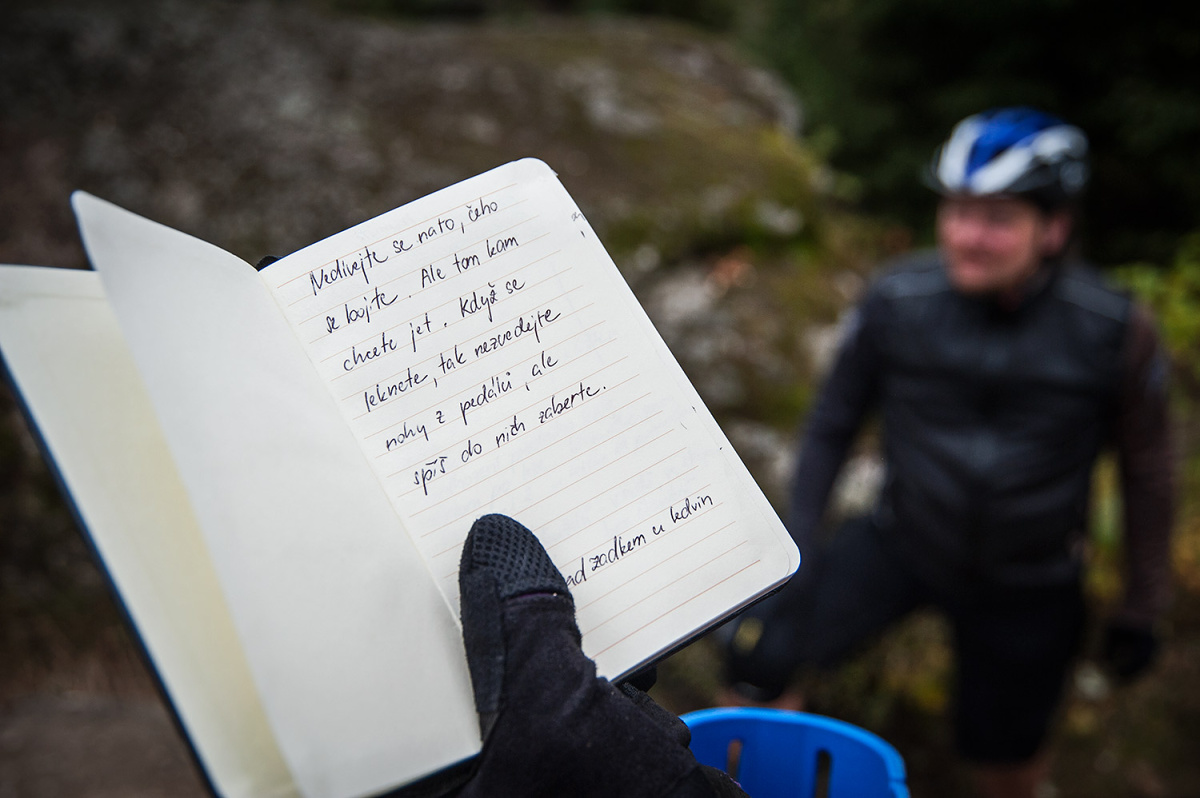 Nedívejte se na to, čeho
se bojíte. Ale tam kam
chcete jet. Když se
leknete, tak nezvedejte
nohy z pedálů, ale
spíš do nich zaberte.
ad zadkem u ledvin